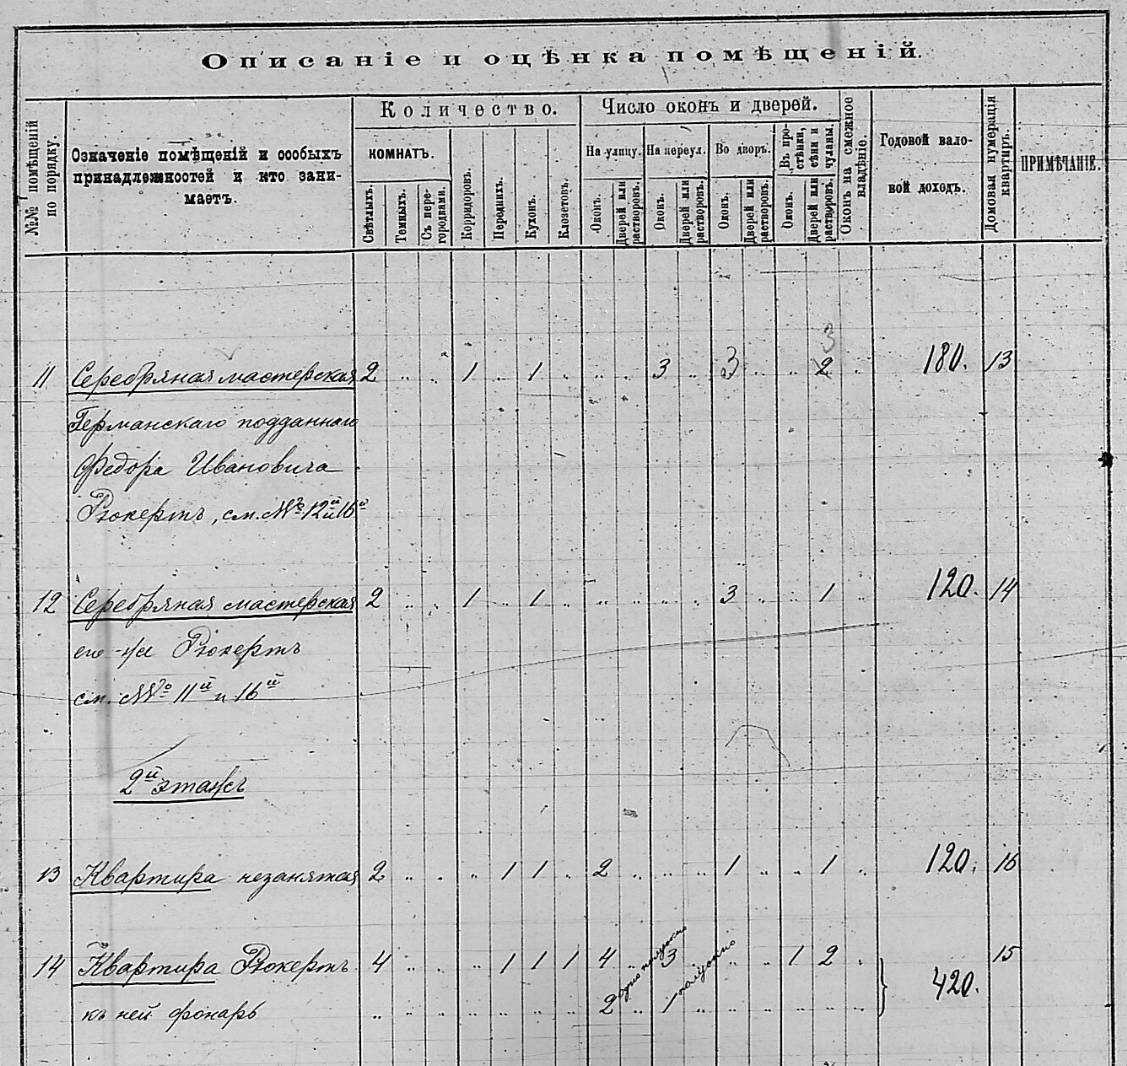 Описаніе и оцѣнка помѣщеній.
№№ помѣщеній по порядку.
Означеніе помѣщеній и особыхъ
принадлежностей и кто зани-
маетъ.
Количество.
КОМНАТЪ.
Свѣтлыхъ.
Темныхъ.
Съ пере-
городками.
Корридоровъ.
Переднихъ.
Кухонъ.
Клозетовъ.
Число оконъ и дверей.
На улицу.
Оконъ.
Дверей или
растворовъ.
На переул.
Оконъ.
Дверей или
растворовъ.
Во дворъ.
Оконъ.
Дверей или
растворовъ.
Въ про-
стѣнки,
сѣни и
чуланы.
Оконъ.
Дверей или
растворовъ.
Оконъ на смежное
владѣніе.
Годовой вало-
вой доходъ.
Домовая нумерація
квартиръ.
ПРИМѢЧАНІЕ.
11 Серебряная мастерская 2 „ „ 1 „ 1 „ „ „ 3 „ 3 „ „ 2 „ 180. 13
3
Германскаго подданнаго
Федора Ивановича
Рюкертъ, см. №№ 12й и 16й
12 Серебряная мастерская 2 „ „ 1 „ 1 „ „ „ „ „ 3 „ „ 1 „ 120. 14
его-же Рюкертъ
см. №№ 11й и 16й
2й этажъ
13 Квартира незанятая 2 „ „ „ 1 1 „ 2 „ „ „ 1 „ „ 1 „ 120. 16
14 Квартира Рюкертъ 4 „ „ „ 1 1 1 4 „ 3 „ „ „ 1 2 „ 420. 15
къ ней фонарь „ „ „ „ „ „ „ 2 „ 1 „ „ „ „ „ „